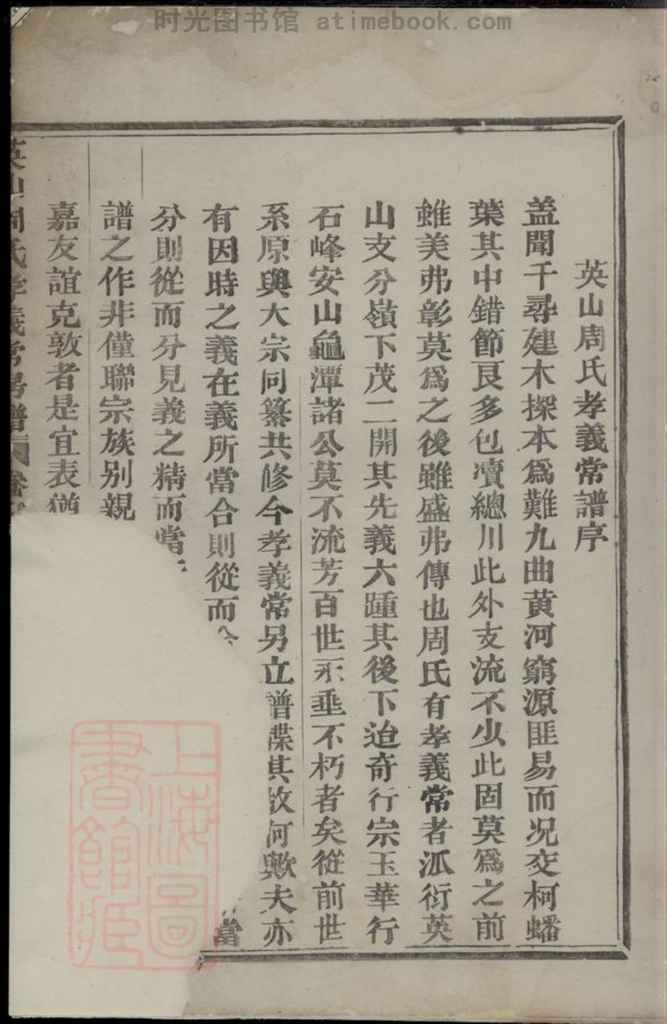 时光图书馆 atimebook.com
英山周氏孝義常譜序
盖聞千尋建木探本爲難九曲黄河窮源匪易而况交柯蟠
葉其中錯節艮多包瀆總川此外支流不少此固莫爲之前
雖美弗彰莫爲之後雖盛弗傳也周氏有孝義常者派衍英
山支分嶺下茂二開其先義六踵其後下迨奇行宗玉華行
石峰安山龜潭諸公莫不流芳百世永垂不朽者矣從前世
系原與大宗同纂共修今孝義常另立譜牒其故何歟夫亦
有因時之義在義所當合則從而合 當
分則從而分見義之精而當
譜之作非僅聯宗族别親
嘉友誼克敦者是宜表猶
英山周氏孝義常房譜 卷
上海圖書館藏